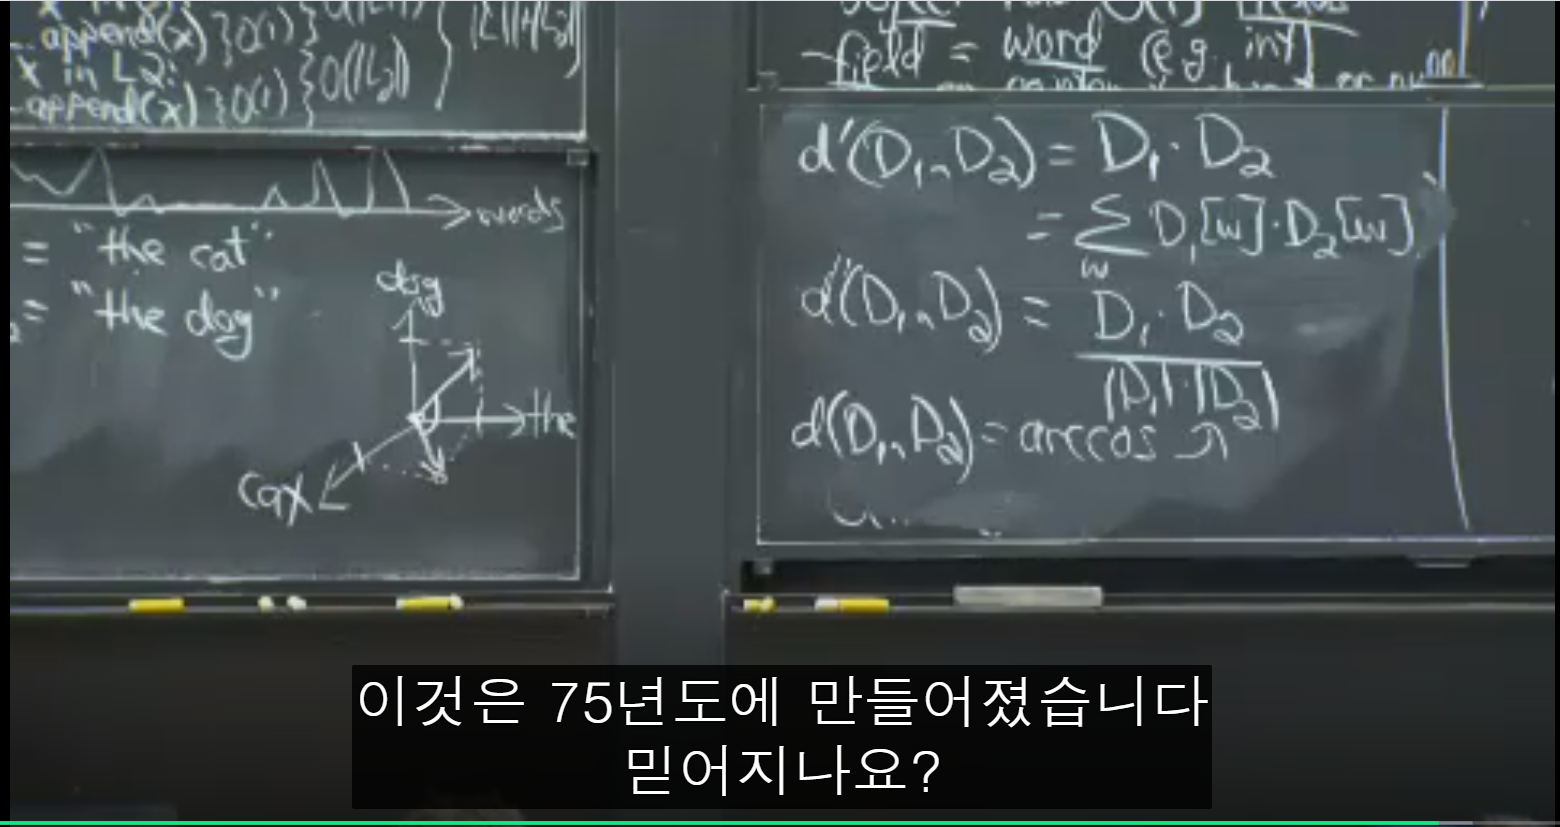 append(x) } O(1) }
x in L2:
append(x) } O(1) } O(|L2|)
words
= "the cat"
= "the dog"
dog
the
cat
- field = word (e.g. int)
d'(D1, D2) = D1 · D2
= Σ D1[w] · D2[w]
w
d''(D1, D2) = D1 · D2
|D1| · |D2|
d(D1, D2) = arccos
이것은 75년도에 만들어졌습니다
믿어지나요?